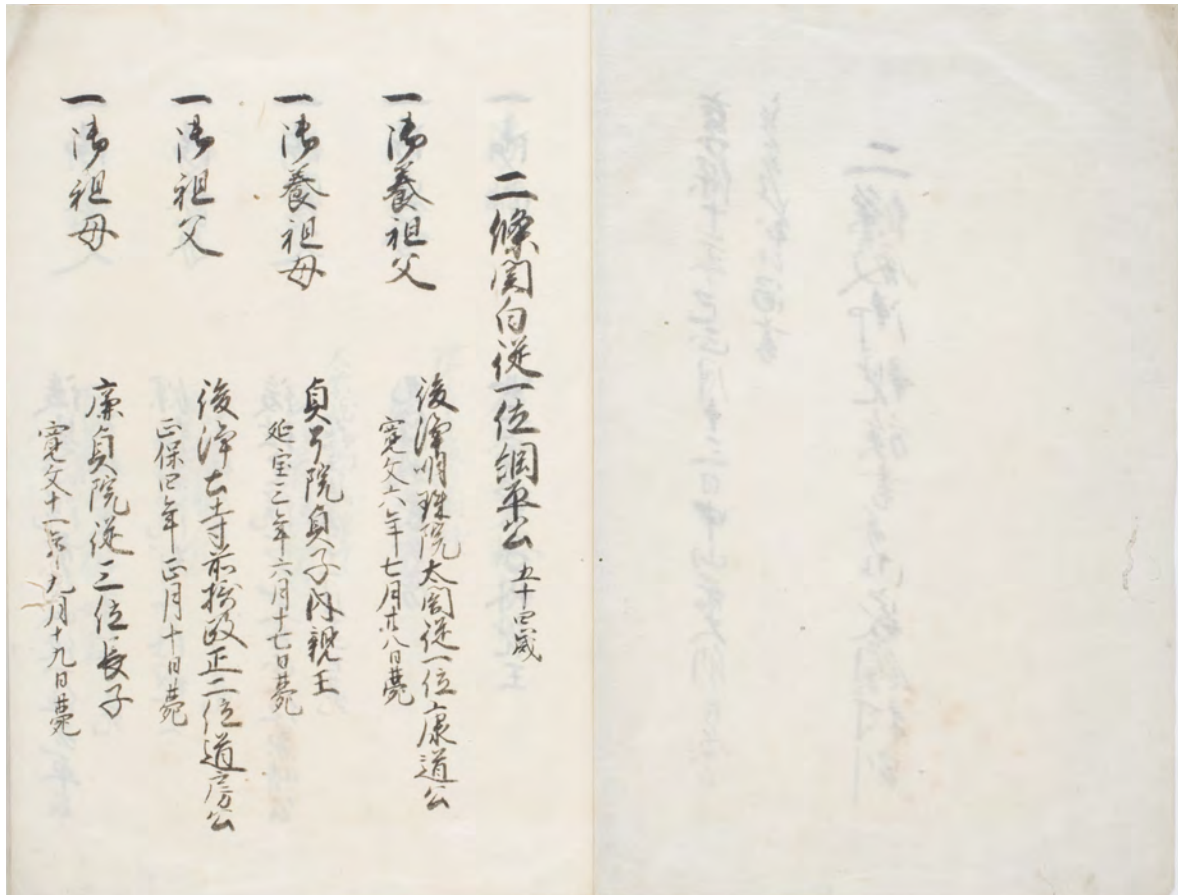 二條関白従一位綱平公 五十四歳
一御養祖父
後浄明珠院太閤従一位康道公
寛文六年七月廿八日薨
一御養祖母
貞了院貞子内親王
延宝三年六月十七日薨
一御祖父
後浄土寺前摂政正二位道房公
正保四年正月十日薨
一御祖母
廉貞院従三位長子
寛文十一年九月十九日薨